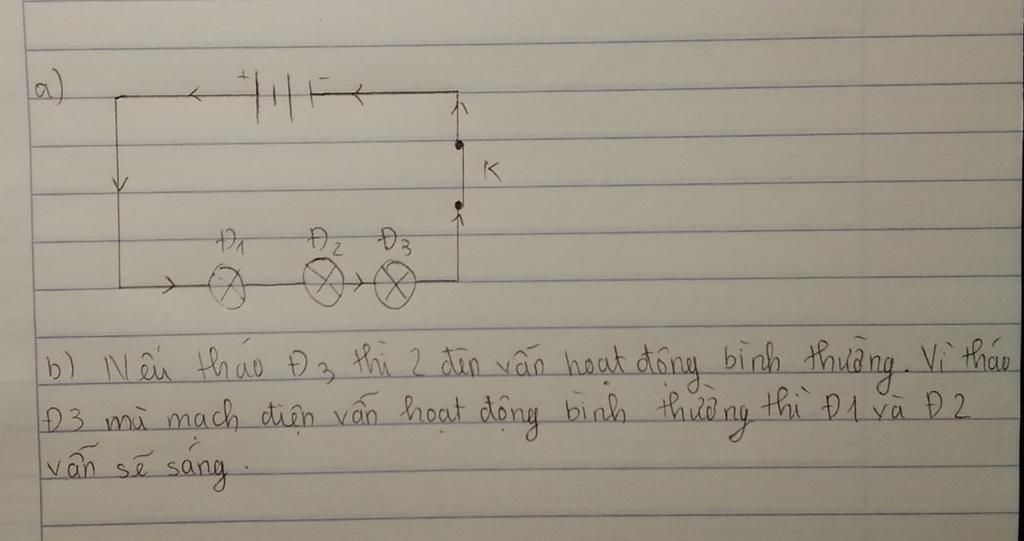 a)
+ -
K
Đ1 Đ2 Đ3
b) Nếu tháo Đ3 thì 2 đèn vẫn hoạt động bình thường. Vì tháo
Đ3 mà mạch điện vẫn hoạt động bình thường thì Đ1 và Đ2
vẫn sẽ sáng.